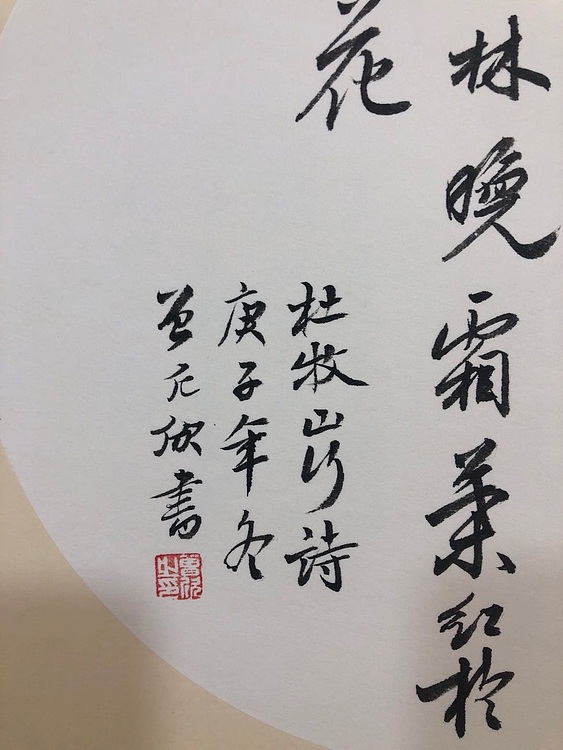 林晚霜葉红於
花
杜牧山行詩
庚子年冬
曾凡欣書